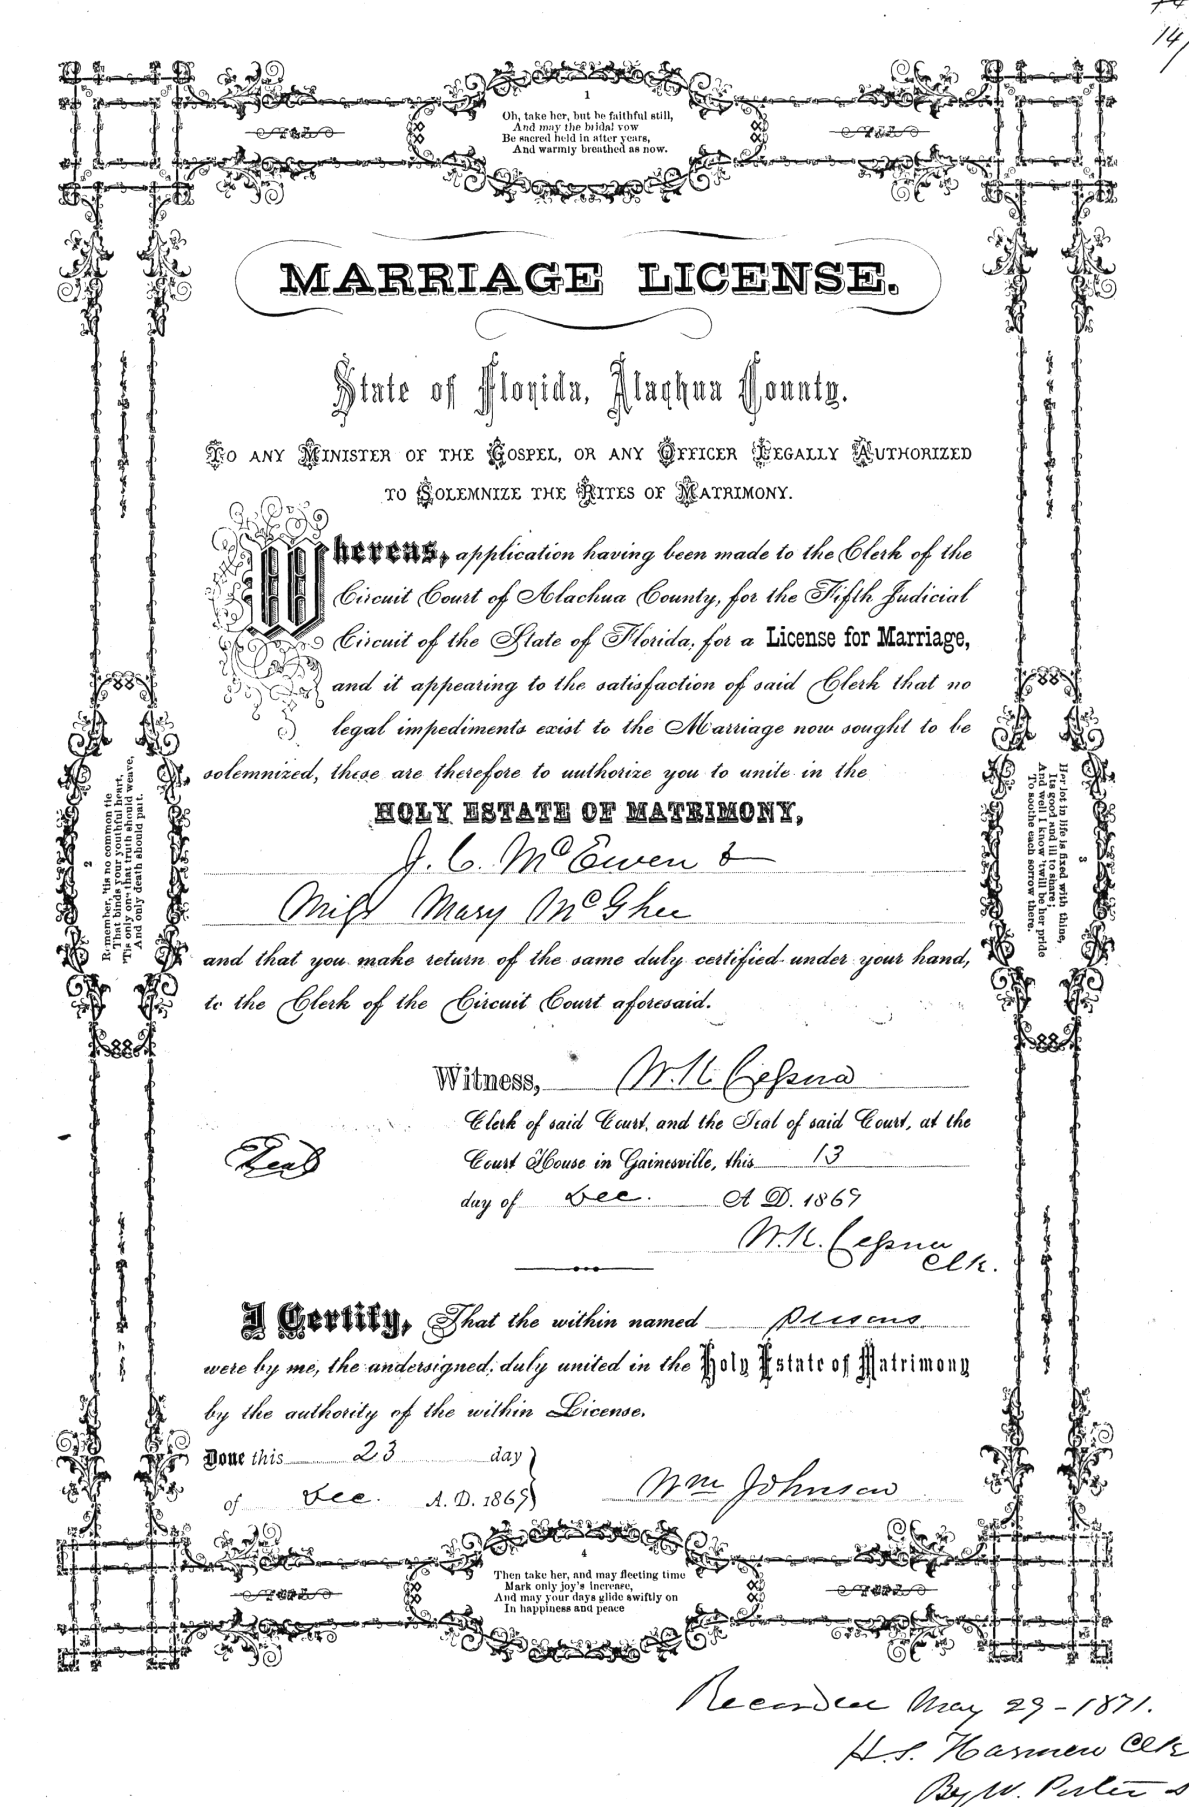 14
1
Oh, take her, but be faithful still,
And may the bridal vow
Be sacred held in after years,
And warmly breathed as now.
MARRIAGE LICENSE.
State of Florida, Alachua County.
TO ANY MINISTER OF THE GOSPEL, OR ANY OFFICER LEGALLY AUTHORIZED
TO SOLEMNIZE THE RITES OF MATRIMONY.
Whereas, application having been made to the Clerk of the
Circuit Court of Alachua County, for the Fifth Judicial
Circuit of the State of Florida, for a License for Marriage,
and it appearing to the satisfaction of said Clerk that no
legal impediments exist to the Marriage now sought to be
solemnized, these are therefore to authorize you to unite in the
HOLY ESTATE OF MATRIMONY,
J. C. McEwen &
Miss Mary McGhee
and that you make return of the same duly certified under your hand,
to the Clerk of the Circuit Court aforesaid.
2
Remember, 'tis no common tie
That binds your youthful heart,
'Tis only one that truth should weave,
And only death should part.
3
Her lot in life is fixed with thine,
Its good and ill to share;
And well I know 'twill be her pride
To soothe each sorrow there.
Witness, W. K. Cessna
Clerk of said Court, and the Seal of said Court, at the
Seal
Court House in Gainesville, this 13
day of Dec. A. D. 1869
W. K. Cessna
Clk.
I Certify, That the within named persons
were by me, the undersigned, duly united in the Holy Estate of Matrimony
by the authority of the within License.
Done this 23 day
of Dec. A. D. 1869
Wm Johnson
4
Then take her, and may fleeting time
Mark only joy's increase,
And may your days glide swiftly on
In happiness and peace
Recorded May 29-1871.
H. S. Harmon Clk
By W. Porter